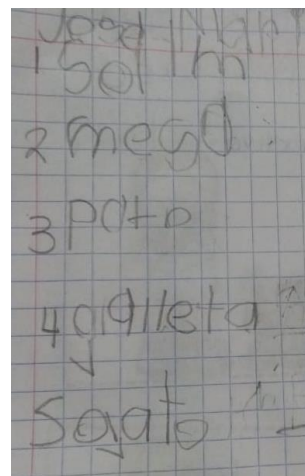 1 Sol m
2 mesa
3 pato
4 galleta
5 gato